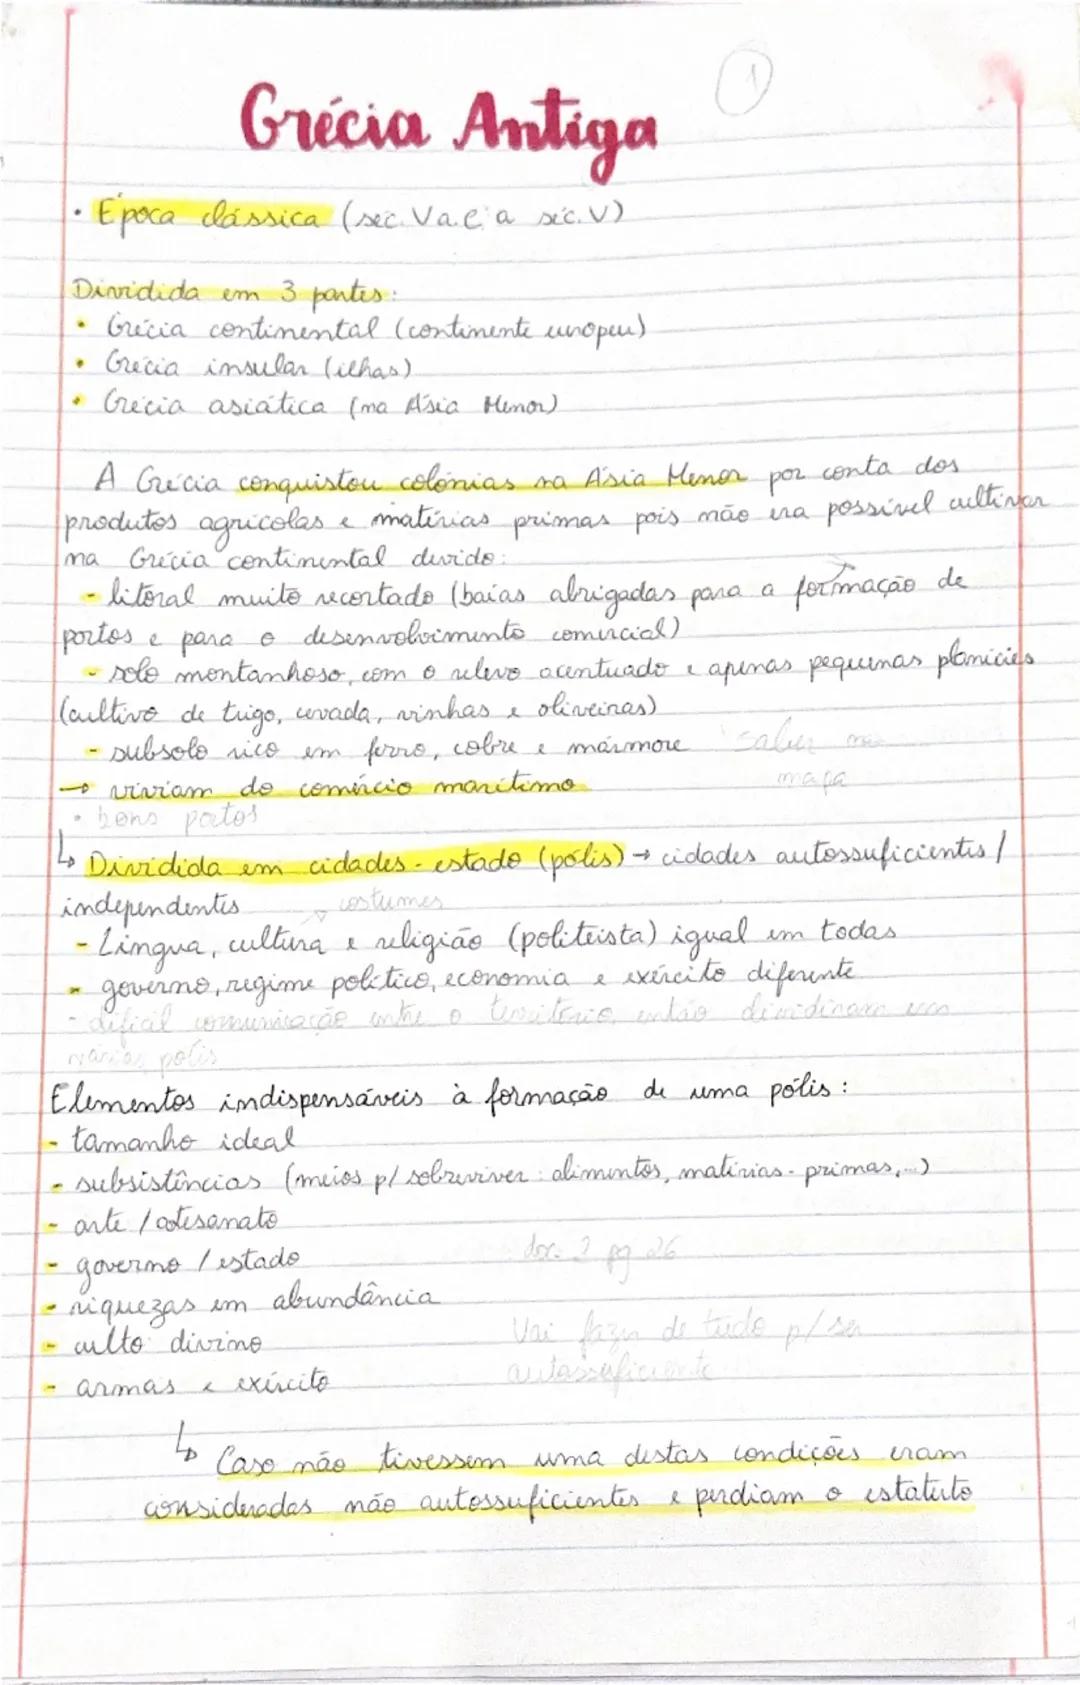 1
Grécia Antiga
• Época clássica (séc. V a.C. a séc. V)
Dividida em 3 partes:
• Grécia continental (continente europeu)
• Grécia insular (ilhas)
• Grécia asiática (na Ásia Menor)
A Grécia conquistou colónias na Ásia Menor por conta dos
produtos agrícolas e matérias primas pois não era possível cultivar
na Grécia continental devido:
- litoral muito recortado (baías abrigadas para a formação de
portos e para o desenvolvimento comercial)
- solo montanhoso, com o relevo acentuado e apenas pequenas planícies
(cultivo de trigo, cevada, vinhas e oliveiras)
- subsolo rico em ferro, cobre e mármore saber no
→ viviam do comércio marítimo mapa
• bons portos
↳ Dividida em cidades-estado (pólis) → cidades autossuficientes /
independentes costumes
- Língua, cultura e religião (politeísta) igual em todas
- governo, regime político, economia e exército diferente
- difícil comunicação entre o território, então dividiram em
várias polis
Elementos indispensáveis à formação de uma pólis:
- tamanho ideal
- subsistências (meios p/ sobreviver: alimentos, matérias-primas,...)
- arte / artesanato
- governo / estado doc. 2 pg 26
- riquezas em abundância
- culto divino Vai fazer de tudo p/ ser
- armas e exército autossuficiente
↳ Caso não tivessem uma destas condições eram
consideradas não autossuficientes e perdiam o estatuto